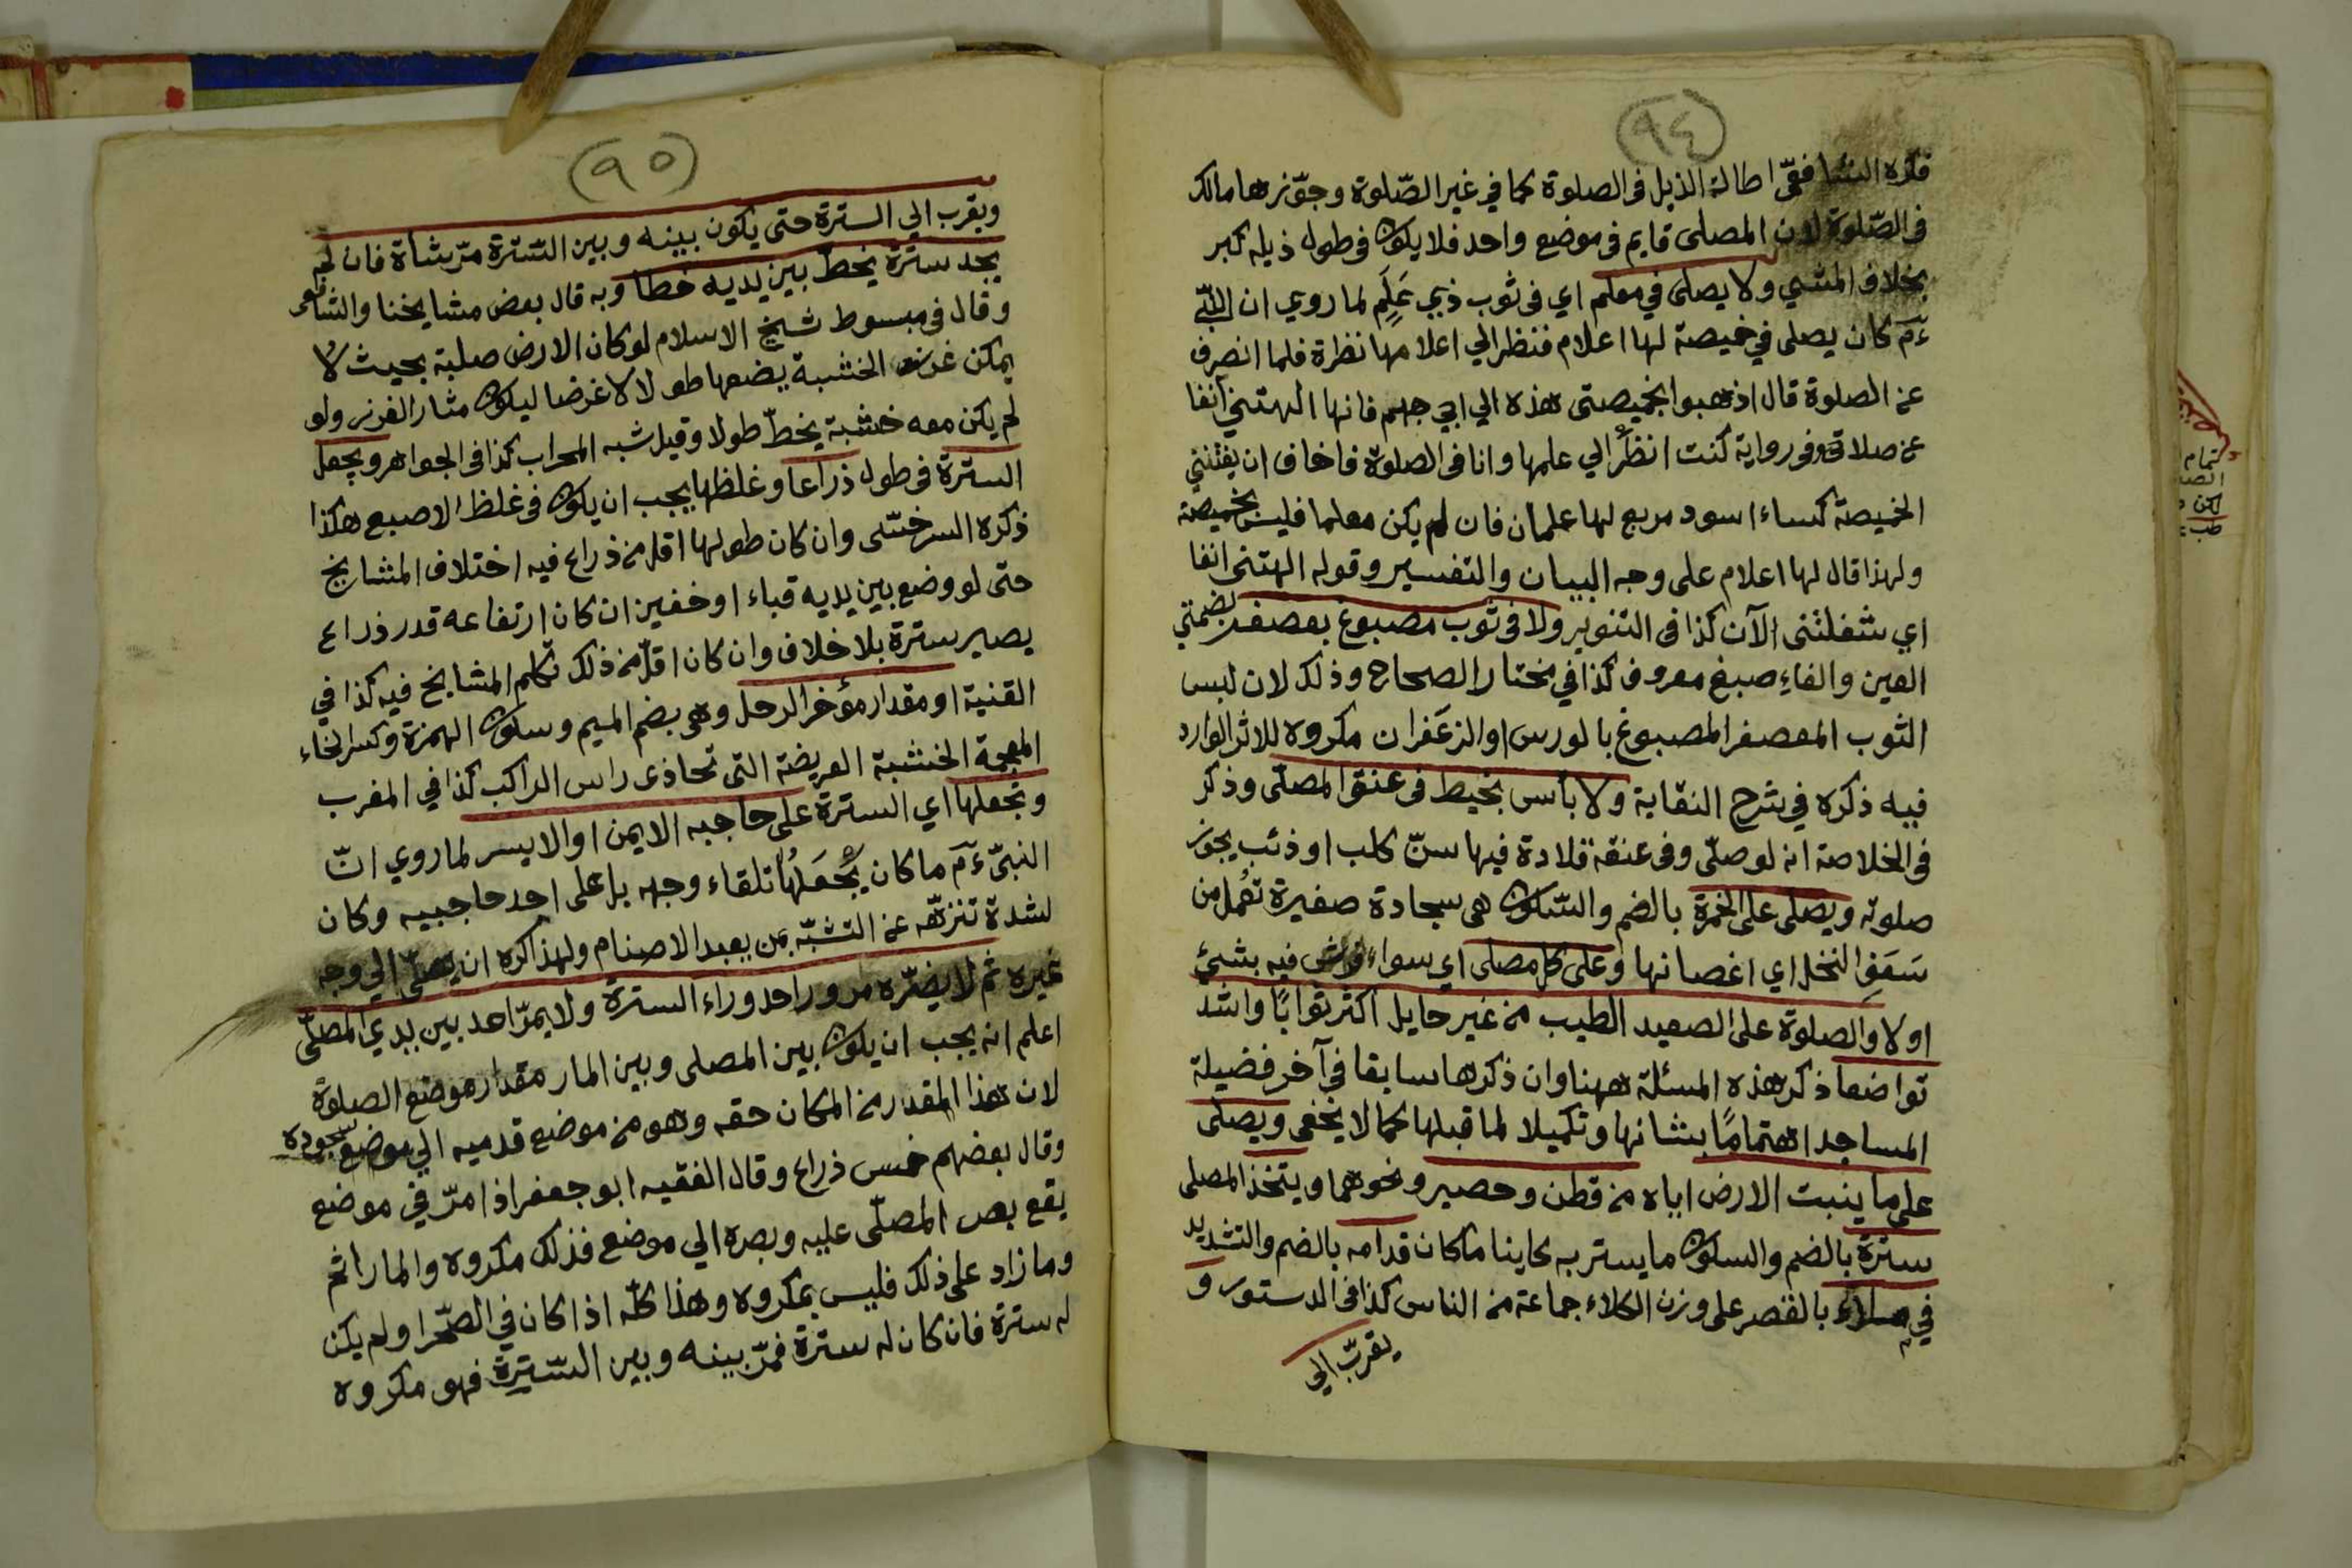 (٩٤)
فكره الشافعيّ اطالة الذيل في الصلوة كما في غير الصّلوة وجوّزها مالك
في الصّلوة لان المصلى قايم في موضع واحد فلا يكون في طول ذيله كبر
بخلاف المشي ولا يصلى في معلم اي في ثوب ذي عَلَم لما روي ان النبّي
ءمَ كان يصلى في خميصة لها اعلام فنظر الي اعلامها نظرة فلما انصرف
عن الصلوة قال اذهبوا بخميصتى هذه الي ابي جهم فانها الهتني آنفا
عن صلاتى وفي رواية كنت انظرُ الي علمها وانا في الصلوة فاخاف ان يفتنني
الخميصة كساء اسود مربع لها علمان فان لم يكن معلما فليس بخميصة
ولهذا قال لها اعلام على وجه البيان والتفسير وقوله الهتنى انفا
اي شغلتنى الآن كذا في التنوير ولا في ثوب مصبوغ بعصفر بضمتي
العين والفاءِ صبغ معروف كذا في مختار الصحاح وذلك لان لبس
الثوب المعصفر المصبوغ بالورس او الزعَفران مكروه للاثر الوارد
فيه ذكره في شرح النقاية ولا بأس بخيط في عنق المصلّى وذكر
في الخلاصة انه لو صلّى وفي عنقه قلادة فيها سنّ كلب او ذئب يجوز
صلوته ويصلى على الخمرة بالضم والسّكون هي سجادة صغيرة تعُمل من
سَعَفِ النخل اي اغصانها وعلى كل مصلى اي سواء فرش فيه بشيئ
اولا والصلوة على الصعيد الطيب من غير حايل اكثر ثوابًا واشد
تواضعا ذكر هذه المسئلة ههنا وان ذكرها سابقا في آخر فضيلة
المساجد اهتمامًا بشانها وتكميلا لما قبلها كما لا يخفى ويصلى
على ما ينبت الارض اياه من قطن وحصير ونحوهما ويتخذ المصلى
سترة بالضم والسكون ما يستر به كاينا ما كان قدامه بالضم والتشديد
في ملاء بالقصر على وزن الكلاء جماعة من الناس كذا في الدستور و
يقربّ الي
(٩٥)
ويقرب الي السترة حتى يكون بينه وبين السّترة مرّ شاة فان لم
يجد سترة يخطّ بين يديه خطا وبه قال بعض مشايخنا والشافعى
وقال في مبسوط شيخ الاسلام لو كان الارض صلبة بحيث لا
يمكن غرز الخشبة يضعها طولا لا عرضا ليكون مثار الغرز ولو
لم يكن معه خشبة يخطّ طولا وقيل شبه المحراب كذا في الجواهر ويجعل
السترة في طول ذراعا وغلظها يجب ان يكون في غلظ الاصبع هكذا
ذكره السرخسّى وان كان طولها اقل من ذراع فيه اختلاف المشايخ
حتى لو وضع بين يديه قباء او خفين ان كان ارتفاعه قدر ذراع
يصير سترة بلا خلاف وان كان اقلّ من ذلك تكلم المشايخ فيه كذا في
القنية او مقدار مؤخر الرحل وهي بضم الميم وسكون الهمزة وكسر الخاء
المعجمة الخشبة العريضة التى تحاذى راس الراكب كذا في المغرب
وتجعلها اي السترة على حاجبه الايمن او الايسر لما روي انّ
النبيّ ءمَ ما كان يَجُعَلهُا تلقاء وجهه بل على احد حاجبيه وكان
لشدة تنزهّه عن التشبّه بمن يعبد الاصنام ولهذا كره ان يصلّي الي وجه
غيره ثم لا يضرّه مرور احد وراء السترة ولا يمرّ احد بين يدي المصلّي
اعلم انه يجب ان يكون بين المصلى وبين المار مقدار موضع الصلوة
لان هذا المقدار من المكان حقه وهو من موضع قدميه الي موضع سجوده
وقال بعضهم خمس ذراع وقال الفقيه ابو جعفر اذا مرّ في موضع
يقع بصر المصلّى عليه وبصره الي موضع فذلك مكروه والمار اثم
وما زاد على ذلك فليس بمكروه وهذا كلّه اذا كان في الصّحرا ولم يكن
له سترة فان كان له سترة فمرّ بينه وبين السّترة فهو مكروه
تمام